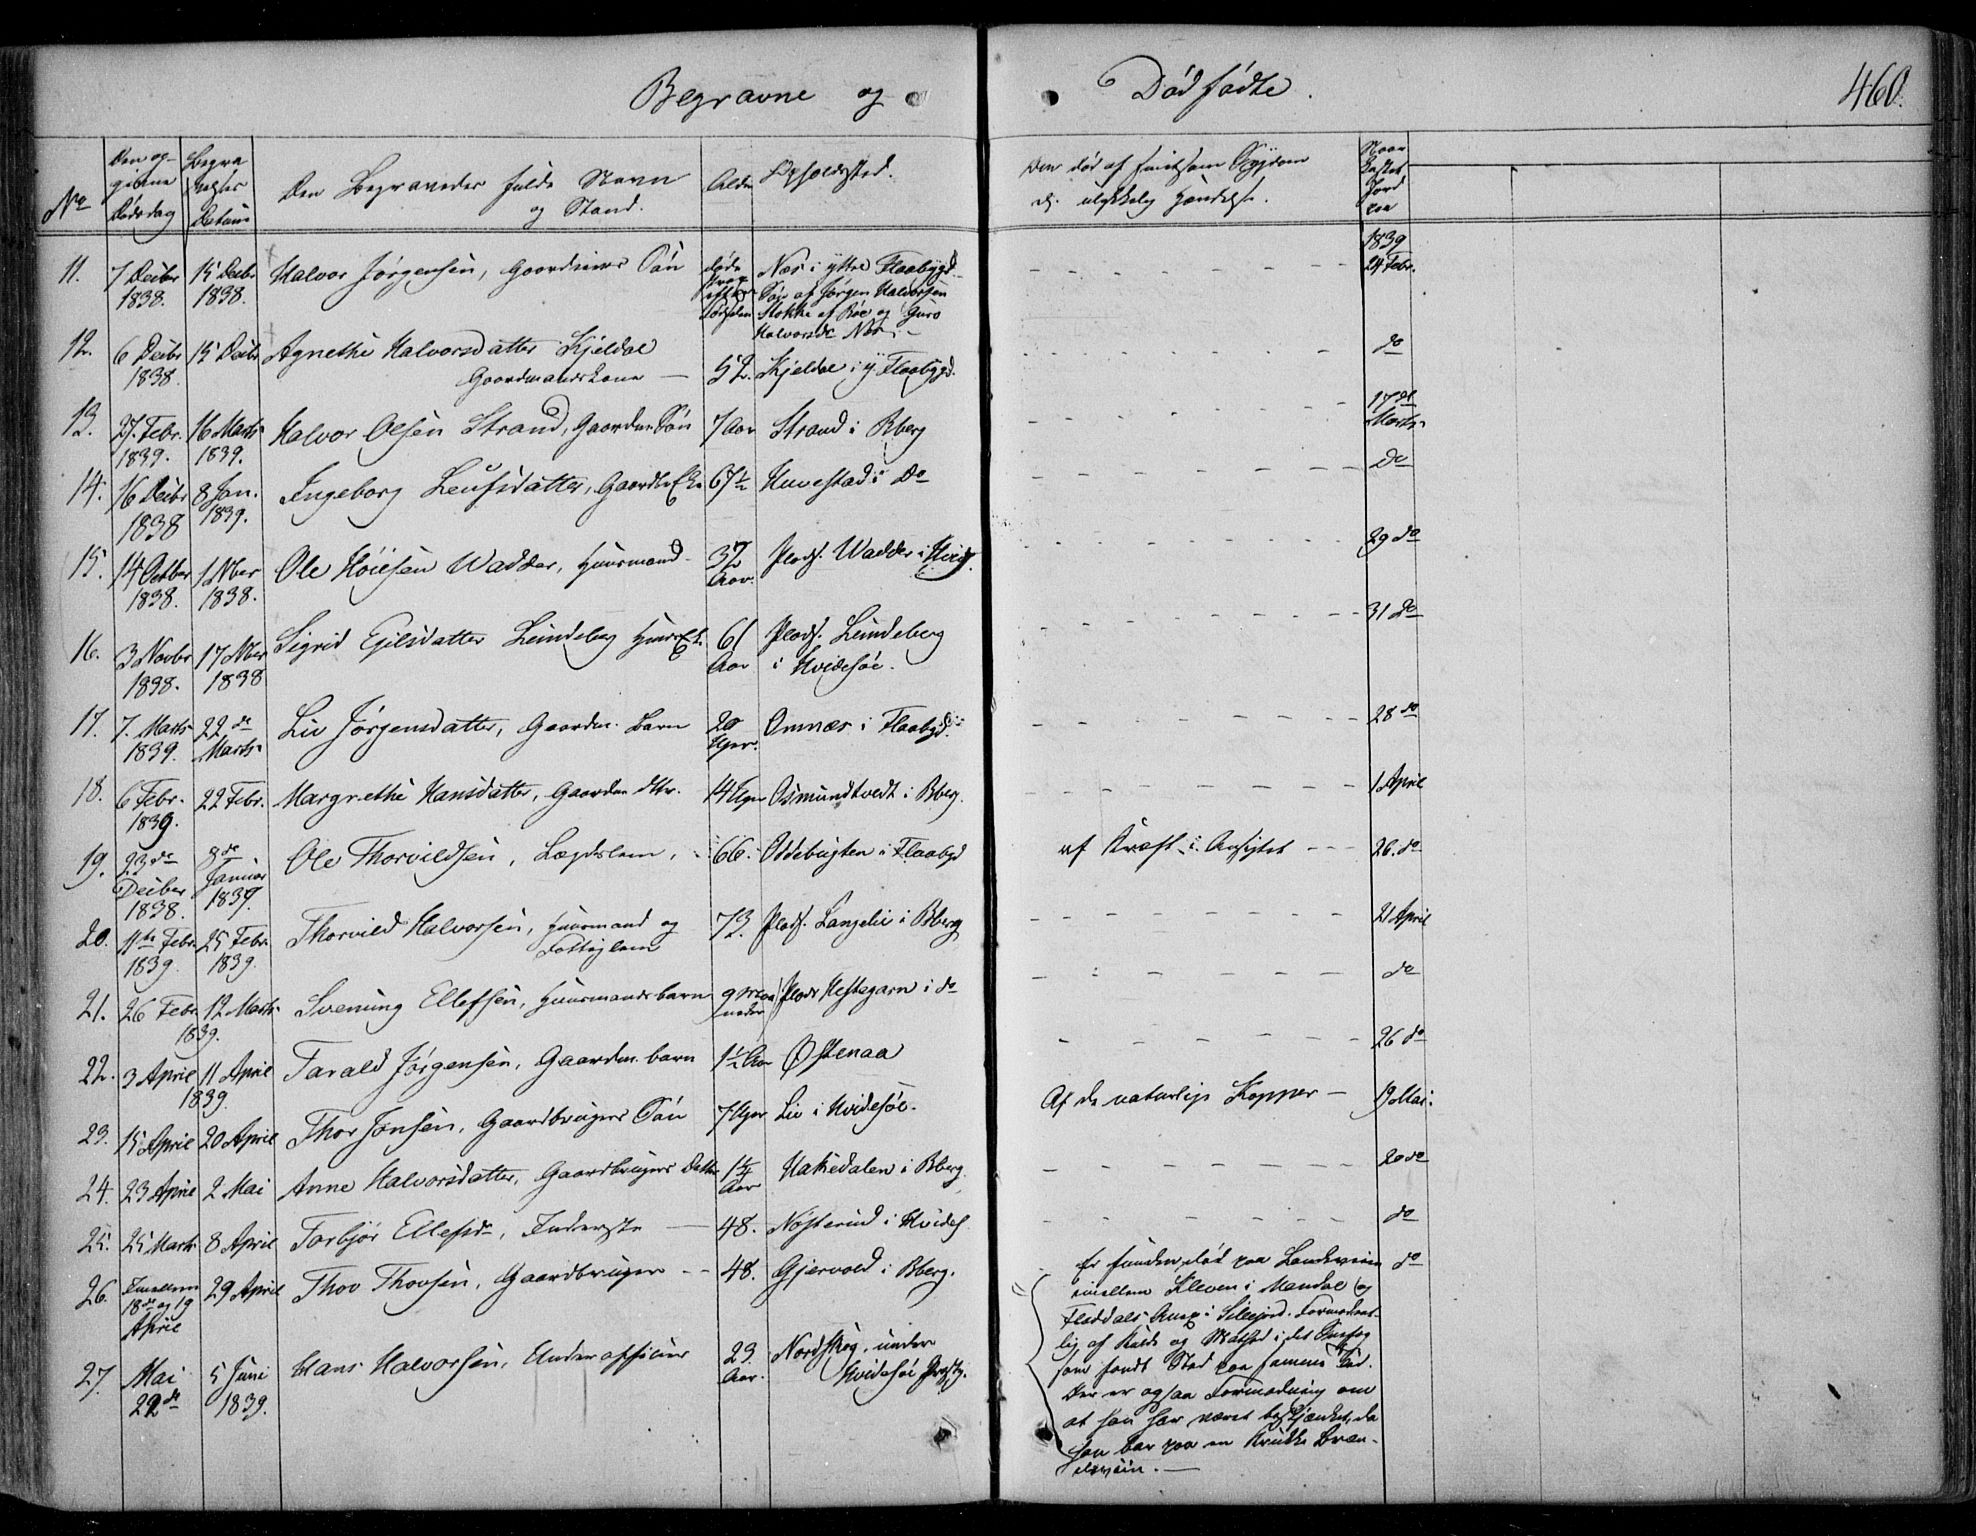 Begravne og Dødfødte.
460.
No
Den opgivne Dødsdag
Begravelses Datum
Den Begravedes fulde Navn og Stand.
Alder
Opholdssted.
Den død af smitsom Sygdom el. ulykkelig Hændelse.
Naar kastet Jord paa
11. 7 Decbr 1838. 15 Decbr 1838. Halvor Jørgensen, Gaardmands Søn døde strax efter Fødselen Næs i yttre Flaabygd. 1839 24 Febr.
Søn af Jørgen Halvorsen
Stokke af Røe og Guro
Halvorsdr Næs.
12. 6 Decbr 1838. 15 Decbr Agnethe Halvorsdatter Kjeldal
Gaardmandskone — 52. Kjeldal i y Flaabygd. do
13. 27. Febr. 1839. 16 Marts 1839. Halvor Olsen Strand, Gaardm. Søn 7 Aar Strand i Bberg 17de Marts
14. 16 Decbr 1838 8 Jan. 1839. Ingeborg Leufsdatter, 67½ Huvestad i Do Do
15. 14 Octber 1838. 1 Nber 1838. Ole Høiesen Wadder, Huusmand 37 Aar. Plads. Wadder i Hvids. 29 do
16. 3 Novbr 1838. 17 Nber 1838 Sigrid Egilsdatter Lundeberg 61 Aar Plads. Lundeberg i Hvidesøe. 31 do
17. 7. Marts 1839. 22de Marts Liv Jørgensdatter, Gaardm. Barn 20 Uger. Omnæs i Flaabygd. 28 do
18. 6 Febr. 1839. 22 Febr. Margrethe Hansdatter, Gaardm dttr. 14 Uger Osmundtvedt i Bberg. 1 April
19. 23de Decber 1838. 8de Januar 1839. Ole Thorvildsen, Lægdslem, 66. Oddebugten i Flaabgd af Kræft i Ansigtet 26. do
20. 11te Febr. 1839. 25 Febr. 1839. Thorvild Halvorsen, Huusmand og
Fattiglem 73. Plads. Langelie i Bberg 21 April
21. 26 Febr. 12 Marts 1839. Svenung Ellefsen, Huusmandsbarn 9 Maaneder Plads Hestegarn i do do
22. 3 April 11 April 1839. Tarald Jørgensen, Gaardm. barn 1½ Aar Østenaa 26 do
23. 15 April 20 April Thor Jonsen, Gaardbrugers Søn 7 Uger Lie i Hvidesøe. Af de naturlige Kopper — 19 Mai.
24. 23 April 2 Mai Anne Halvorsdatter, Gaardbrugers Datter 1¼ Aar Hakedalen i Bberg. 20 do
25. 25 Marts 8 April Torbjør Ellefsdr, Inderste — 48. Nøsterud i Hvides. do
26. Imellem 18de og 19 April 29 April Thov Thovsen, Gaardbruger — 48. Gjervold i Bberg. do
Er funden død paa Landeveien
imellem Kleven i Mandal og
Fladdals Annex i Sillejord. Formodent-
lig af Kulde og Mathed i det Snefog
som fandt Sted paa samme Tid.
Der er ogsaa Formodning om
at han har været beskjænket, da
han bar paa en Krukke Bræn-
deviin. —
27. Mai 22de 5 Juni 1839. Hans Halvorsen, Underofficier 23. Aar. Nordskog, under
Hvidesøe Prstg.